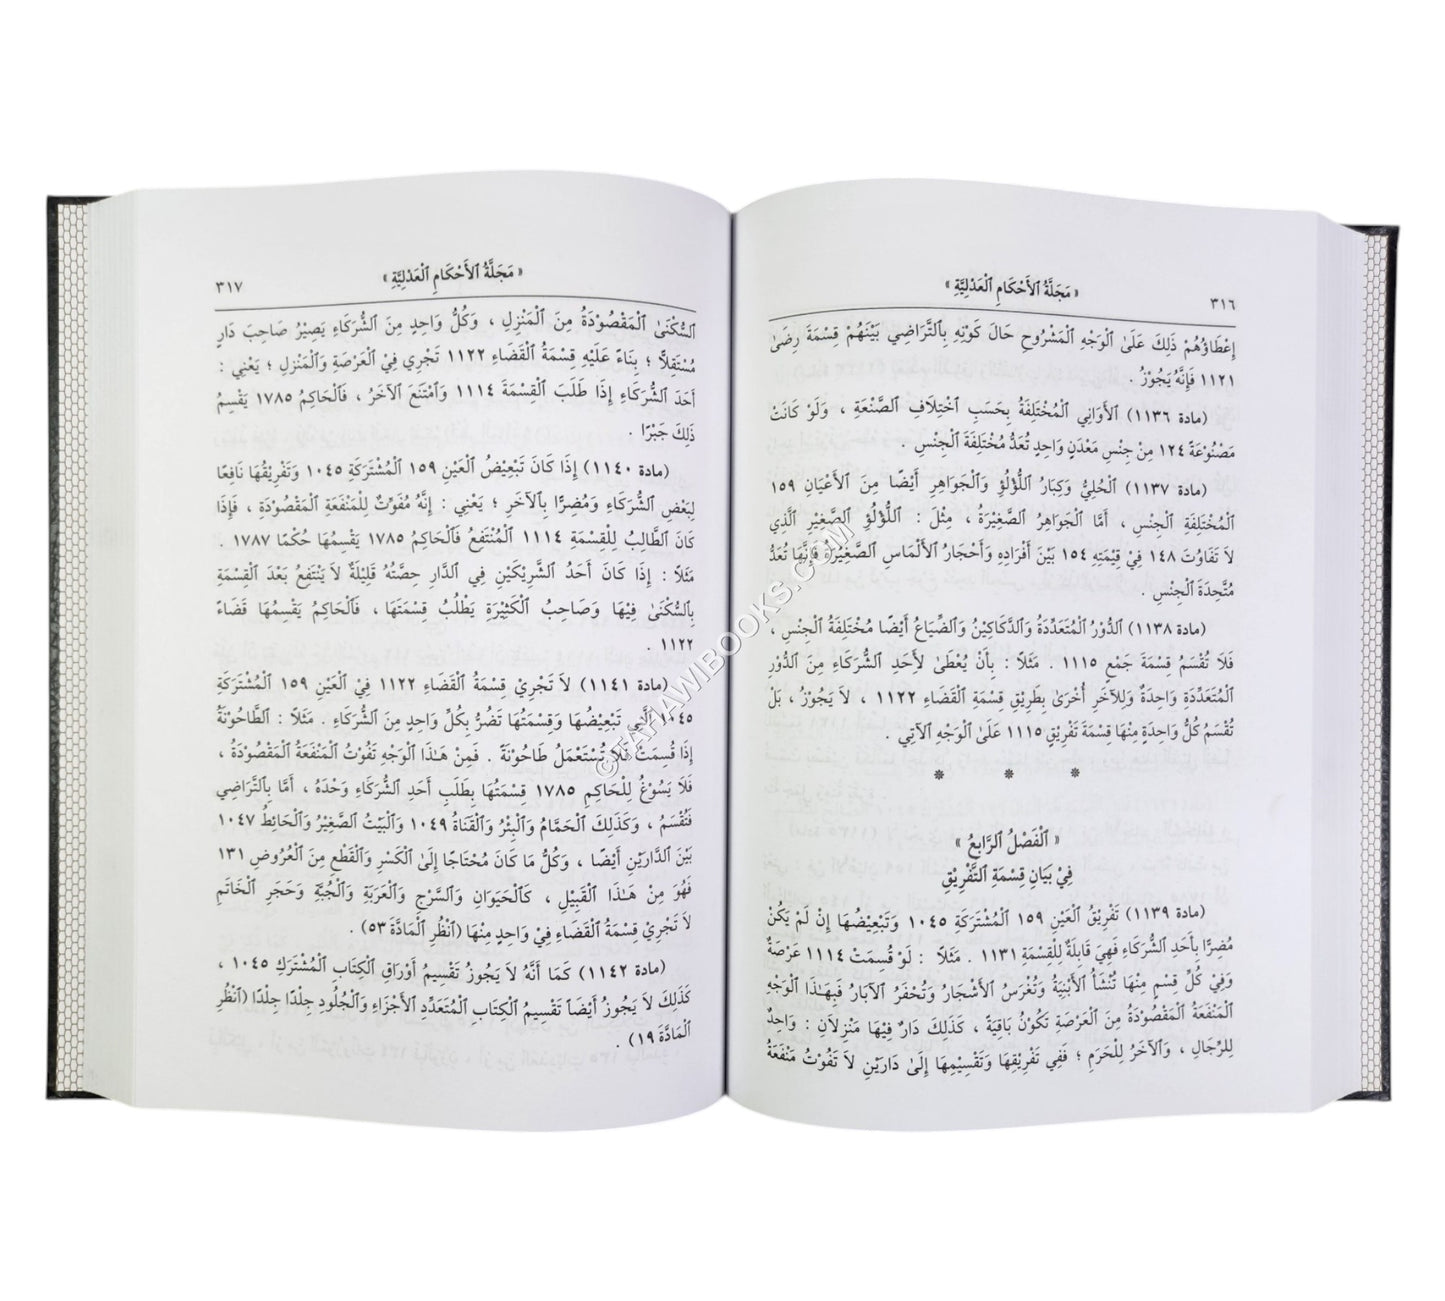 ٣١٦
« مَجَلَّةُ ٱلأَحْكَامِ ٱلْعَدْلِيَّةِ »
إِعْطَاؤُهُمْ ذَلِكَ عَلَىٰ ٱلْوَجْهِ ٱلْمَشْرُوحِ حَالَ كَوْنِهِ بِٱلتَّرَاضِي بَيْنَهُمْ قِسْمَةَ رِضَىٰ
١١٢١ فَإِنَّهُ يَجُوْزُ .
(مادة ١١٣٦) ٱلأَوَانِي ٱلْمُخْتَلِفَةُ بِحَسَبِ ٱخْتِلَافِ ٱلصَّنْعَةِ ، وَلَوْ كَانَتْ
مَصْنُوعَةً ١٢٤ مِنْ جِنْسِ مَعْدَنٍ وَاحِدٍ تُعَدُّ مُخْتَلِفَةَ ٱلْجِنْسِ .
(مادة ١١٣٧) ٱلْحُلِيُّ وَكِبَارُ ٱللُّؤْلُؤِ وَٱلْجَوَاهِرِ أَيْضًا مِنَ ٱلأَعْيَانِ ١٥٩
ٱلْمُخْتَلِفَةِ ٱلْجِنْسِ ، أَمَّا ٱلْجَوَاهِرُ ٱلصَّغِيْرَةُ ، مِثْلَ : ٱللُّؤْلُؤِ ٱلصَّغِيْرِ ٱلَّذِي
لاَ تَفَاوُتَ ١٤٨ فِيْ قِيْمَتِهِ ١٥٤ بَيْنَ أَفْرَادِهِ وَأَحْجَارُ ٱلأَلْمَاسِ ٱلصَّغِيْرَةُ فَإِنَّهَا تُعَدُّ
مُتَّحِدَةَ ٱلْجِنْسِ .
(مادة ١١٣٨) ٱلدُّوْرُ ٱلْمُتَعَدِّدَةُ وَٱلدَّكَاكِيْنُ وَٱلضِّيَاعُ أَيْضًا مُخْتَلِفَةُ ٱلْجِنْسِ ،
فَلاَ تُقْسَمُ قِسْمَةَ جَمْعٍ ١١١٥ . مَثَلاً : بِأَنْ يُعْطَىٰ لِأَحَدِ ٱلشُّرَكَاءِ مِنَ ٱلدُّوْرِ
ٱلْمُتَعَدِّدَةِ وَاحِدَةٌ وَلِلآخَرِ أُخْرَىٰ بِطَرِيْقِ قِسْمَةِ ٱلْقَضَاءِ ١١٢٢ ، لاَ يَجُوْزُ ، بَلْ
تُقْسَمُ كُلُّ وَاحِدَةٍ مِنْهَا قِسْمَةَ تَفْرِيْقٍ ١١١٥ عَلَىٰ ٱلْوَجْهِ ٱلآتِي .
* * *
« ٱلْفَصْلُ ٱلرَّابِعُ »
فِيْ بَيَانِ قِسْمَةِ ٱلتَّفْرِيْقِ
(مادة ١١٣٩) تَفْرِيْقُ ٱلْعَيْنِ ١٥٩ ٱلْمُشْتَرَكَةِ ١٠٤٥ وَتَبْعِيْضُهَا إِنْ لَمْ يَكُنْ
مُضِرًّا بِأَحَدِ ٱلشُّرَكَاءِ فَهِيَ قَابِلَةٌ لِلْقِسْمَةِ ١١٣١ . مَثَلاً : لَوْ قُسِمَتْ ١١١٤ عَرْصَةٌ
وَفِيْ كُلِّ قِسْمٍ مِنْهَا تُنْشَأُ ٱلأَبْنِيَةُ وَتُغْرَسُ ٱلأَشْجَارُ وَتُحْفَرُ ٱلآبَارُ فَبِهَـٰذَا ٱلْوَجْهِ
ٱلْمَنْفَعَةُ ٱلْمَقْصُوْدَةُ مِنَ ٱلْعَرْصَةِ تَكُوْنُ بَاقِيَةً ، كَذَلِكَ دَارٌ فِيْهَا مَنْزِلاَنِ : وَاحِدٌ
لِلرِّجَالِ ، وَٱلآخَرُ لِلْحَرَمِ ؛ فَفِي تَفْرِيْقِهَا وَتَقْسِيْمِهَا إِلَىٰ دَارَيْنِ لاَ تَفُوْتُ مَنْفَعَةُ
« مَجَلَّةُ ٱلأَحْكَامِ ٱلْعَدْلِيَّةِ »
٣١٧
ٱلسُّكْنَىٰ ٱلْمَقْصُوْدَةُ مِنَ ٱلْمَنْزِلِ ، وَكُلُّ وَاحِدٍ مِنَ ٱلشُّرَكَاءِ يَصِيْرُ صَاحِبَ دَارٍ
مُسْتَقِلاًّ ؛ بِنَاءً عَلَيْهِ قِسْمَةُ ٱلْقَضَاءِ ١١٢٢ تَجْرِي فِيْ ٱلْعَرْصَةِ وَٱلْمَنْزِلِ ؛ يَعْنِي :
أَحَدَ ٱلشُّرَكَاءِ إِذَا طَلَبَ ٱلْقِسْمَةَ ١١١٤ وَٱمْتَنَعَ ٱلآخَرُ ، فَٱلْحَاكِمُ ١٧٨٥ يَقْسِمُ
ذَلِكَ جَبْرًا .
(مادة ١١٤٠) إِذَا كَانَ تَبْعِيْضُ ٱلْعَيْنِ ١٥٩ ٱلْمُشْتَرَكَةِ ١٠٤٥ وَتَفْرِيْقُهَا نَافِعًا
لِبَعْضِ ٱلشُّرَكَاءِ وَمُضِرًّا بِٱلآخَرِ ؛ يَعْنِي : إِنَّهُ مُفَوِّتٌ لِلْمَنْفَعَةِ ٱلْمَقْصُوْدَةِ ، فَإِذَا
كَانَ ٱلطَّالِبُ لِلْقِسْمَةِ ١١١٤ ٱلْمُنْتَفِعُ فَٱلْحَاكِمُ ١٧٨٥ يَقْسِمُهَا حُكْمًا ١٧٨٧ .
مَثَلاً : إِذَا كَانَ أَحَدُ ٱلشَّرِيْكَيْنِ فِي ٱلدَّارِ حِصَّتُهُ قَلِيْلَةٌ لاَ يَنْتَفِعُ بَعْدَ ٱلْقِسْمَةِ
بِٱلسُّكْنَىٰ فِيْهَا وَصَاحِبُ ٱلْكَثِيْرَةِ يَطْلُبُ قِسْمَتَهَا ، فَٱلْحَاكِمُ يَقْسِمُهَا قَضَاءً
١١٢٢ .
(مادة ١١٤١) لاَ تَجْرِيْ قِسْمَةُ ٱلْقَضَاءِ ١١٢٢ فِيْ ٱلْعَيْنِ ١٥٩ ٱلْمُشْتَرَكَةِ
١٠٤٥ ٱلَّتِي تَبْعِيْضُهَا وَقِسْمَتُهَا تَضُرُّ بِكُلِّ وَاحِدٍ مِنَ ٱلشُّرَكَاءِ . مَثَلاً : ٱلطَّاحُوْنَةُ
إِذَا قُسِمَتْ فَلاَ تُسْتَعْمَلُ طَاحُوْنَةً . فَمِنْ هَـٰذَا ٱلْوَجْهِ تَفُوْتُ ٱلْمَنْفَعَةُ ٱلْمَقْصُوْدَةُ ،
فَلاَ يَسُوْغُ لِلْحَاكِمِ ١٧٨٥ قِسْمَتُهَا بِطَلَبِ أَحَدِ ٱلشُّرَكَاءِ وَحْدَهُ ، أَمَّا بِٱلتَّرَاضِي
فَتُقْسَمُ ، وَكَذَلِكَ ٱلْحَمَّامُ وَٱلْبِئْرُ وَٱلْقَنَاةُ ١٠٤٩ وَٱلْبَيْتُ ٱلصَّغِيْرُ وَٱلْحَائِطُ ١٠٤٧
بَيْنَ ٱلدَّارَيْنِ أَيْضًا ، وَكُلُّ مَا كَانَ مُحْتَاجًا إِلَىٰ ٱلْكَسْرِ وَٱلْقَطْعِ مِنَ ٱلْعُرُوْضِ ١٣١
فَهُوَ مِنْ هَـٰذَا ٱلْقَبِيْلِ ، كَٱلْحَيَوَانِ وَٱلسَّرْجِ وَٱلْعَرَبَةِ وَٱلْجُبَّةِ وَحَجَرِ ٱلْخَاتَمِ
لاَ تَجْرِيْ قِسْمَةُ ٱلْقَضَاءِ فِيْ وَاحِدٍ مِنْهَا (ٱنْظُرِ ٱلْمَادَّةَ ٥٣) .
(مادة ١١٤٢) كَمَا أَنَّهُ لاَ يَجُوْزُ تَقْسِيْمُ أَوْرَاقِ ٱلْكِتَابِ ٱلْمُشْتَرَكِ ١٠٤٥ ،
كَذَلِكَ لاَ يَجُوْزُ أَيْضًا تَقْسِيْمُ ٱلْكِتَابِ ٱلْمُتَعَدِّدِ ٱلأَجْزَاءِ وَٱلْجُلُودِ جِلْدًا جِلْدًا (ٱنْظُرِ
ٱلْمَادَّةَ ١٩) .
©TAHAWIBOOKS.COM